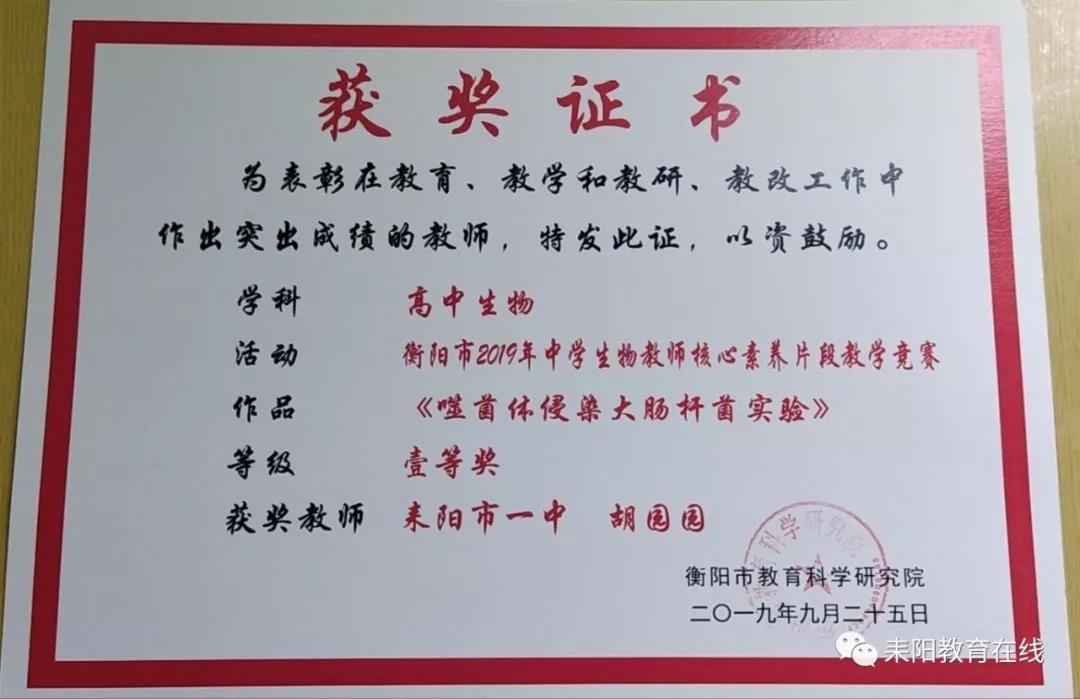 获奖证书
为表彰在教育、教学和教研、教改工作中
作出突出成绩的教师，特发此证，以资鼓励。
学科 高中生物
活动 衡阳市2019年中学生物教师核心素养片段教学竞赛
作品 《噬菌体侵染大肠杆菌实验》
等级 壹等奖
获奖教师 耒阳市一中 胡园园
科学研究院
衡阳市教育科学研究院
二〇一九年九月二十五日
耒阳教育在线